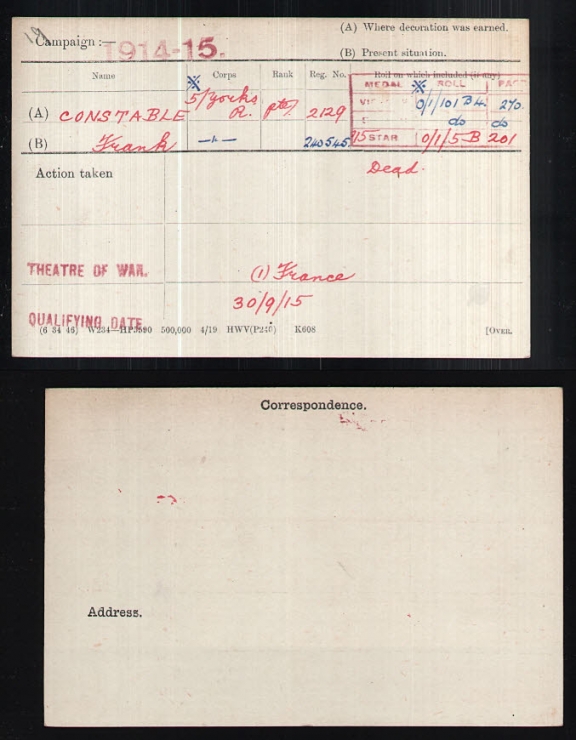 (A) Where decoration was earned.
Campaign :— 1914-15.
(B) Present situation.
Name Corps Rank Reg. No. Roll on which included (if any)
MEDAL ROLL PAGE
(A) CONSTABLE 5/Yorks R. Pte 2129 0/1/101 B4. 270.
do do
(B) Frank —"— 240545 15 STAR 0/1/5 B 201
Action taken Dead.
THEATRE OF WAR. (1) France
QUALIFYING DATE 30/9/15
(6 34 46) 500,000 4/19 K608 [OVER.
Correspondence.
Address.